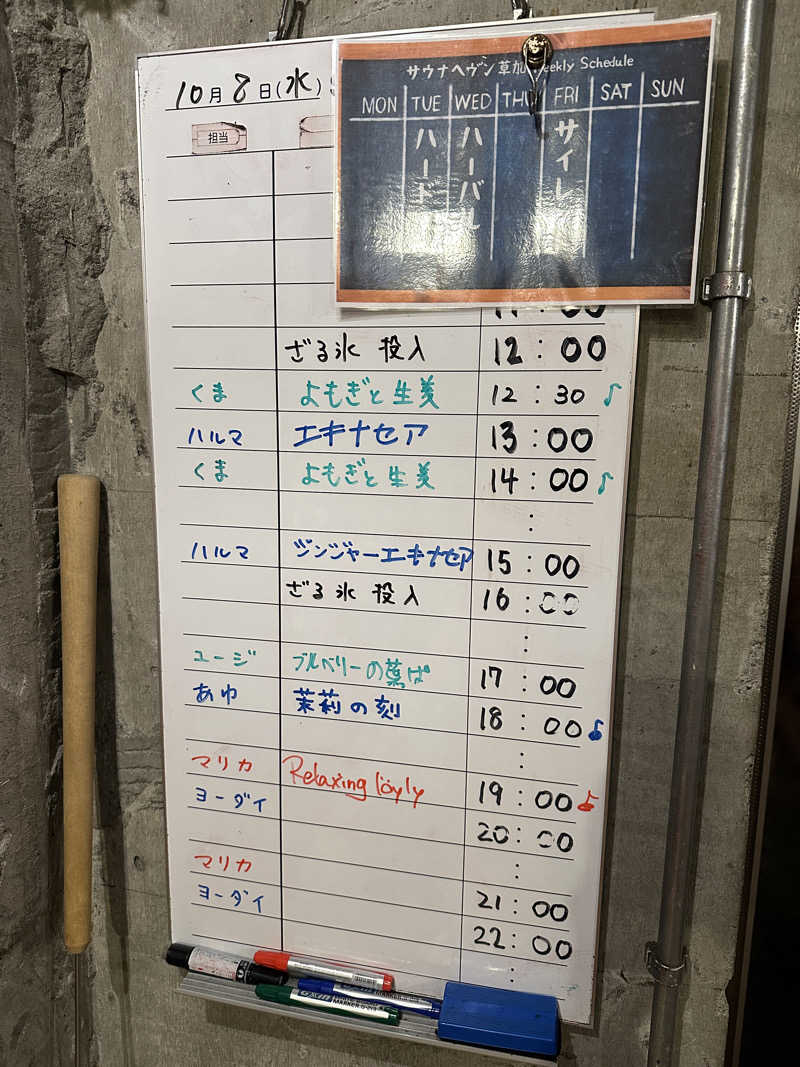 10月8日(水)
サウナヘヴン草加 Weekly Schedule
MON TUE WED THU FRI SAT SUN
ハード
ハーバル
サイレ
担当
ざる氷 投入 12:00
くま よもぎと生姜 12:30 ♪
ハルマ エキナセア 13:00
くま よもぎと生姜 14:00 ♪
:
ハルマ ジンジャーエキナセア 15:00
ざる氷 投入 16:00
:
ユージ ブルベリーの葉っぱ 17:00
あゆ 茉莉の刻 18:00 ♪
:
マリカ Relaxing löyly 19:00 ♪
ヨーダイ 20:00
:
マリカ 21:00
ヨーダイ 22:00
: